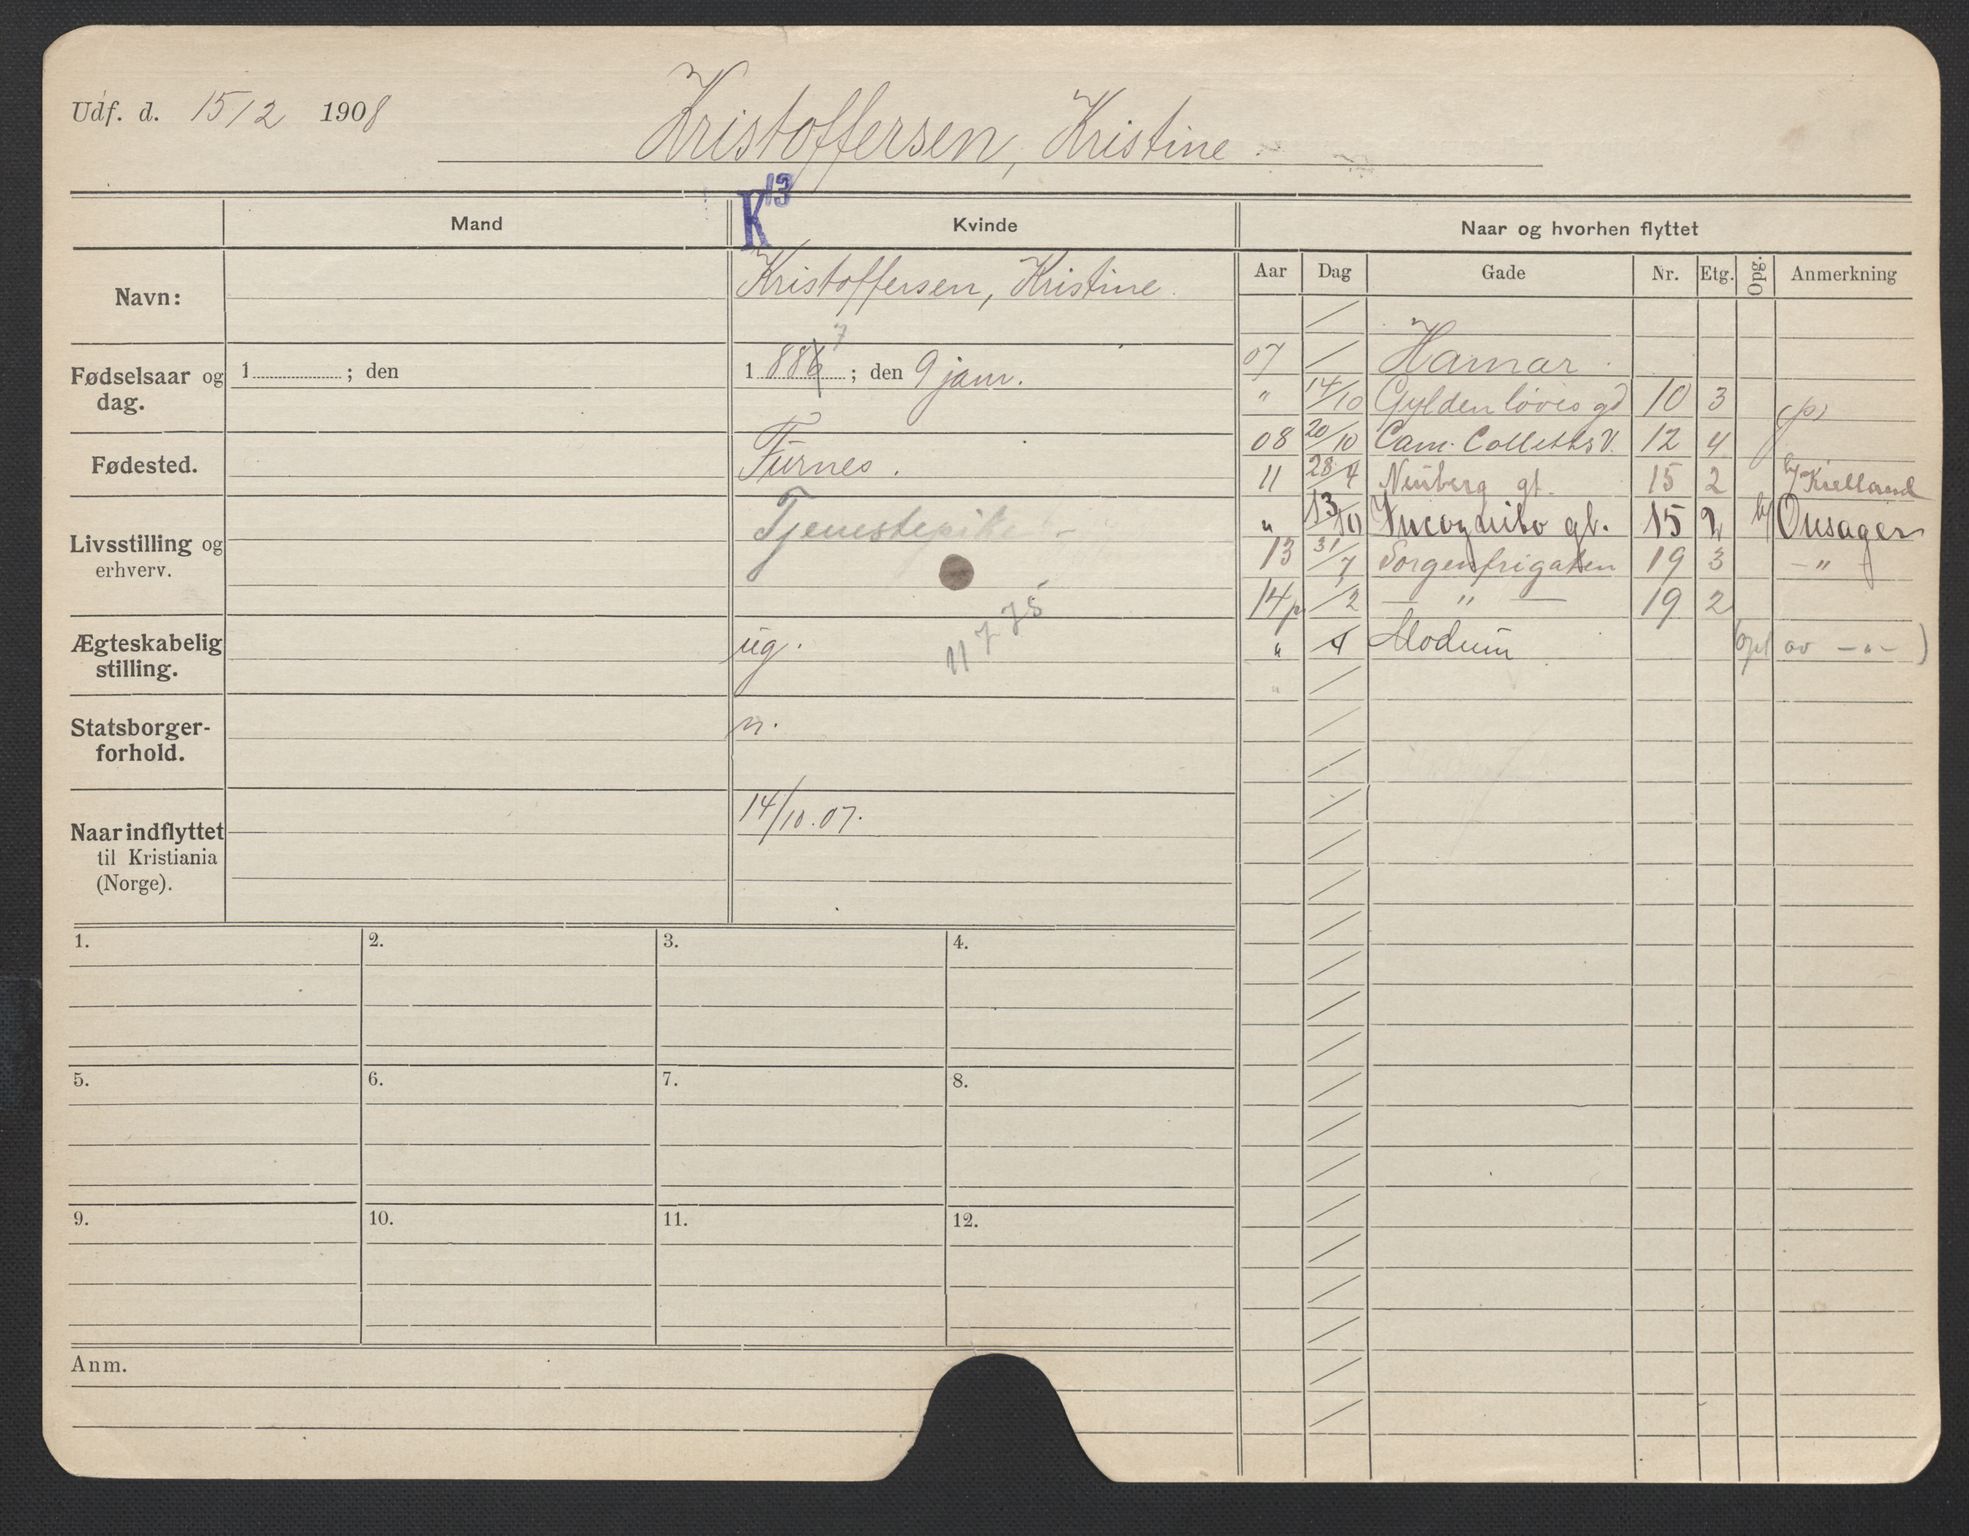 Udf. d. 15/2 1908
Kristoffersen, Kristine
K 13
Mand
Kvinde
Naar og hvorhen flyttet
Navn:
Kristoffersen, Kristine.
Fødselsaar og dag.
1 ; den
1 886 7 ; den 9 jan.
Fødested.
Furnes.
Livsstilling og erhverv.
Tjenestepike
Ægteskabelig stilling.
ug.
11 7 75
Statsborger-
forhold.
n.
Naar indflyttet
til Kristiania
(Norge).
14/10.07.
Aar Dag Gade Nr. Etg. Opg. Anmerkning
07 / Hamar.
" 14/10 Gyldenløves gd 10 3 (p)
08 20/10 Cam. Colletts V. 12 4
11 28/4 Neuberg gt. 15 2 h/ Kielland
" 13/10 Incognito gt. 15 2 h/ Onsager
13 31/7 Sorgenfrigaten 19 3 - " -
14 p /2 — " — 19 2
" /4 Modum (opl av - " - )
"
1. 2. 3. 4.
5. 6. 7. 8.
9. 10. 11. 12.
Anm.